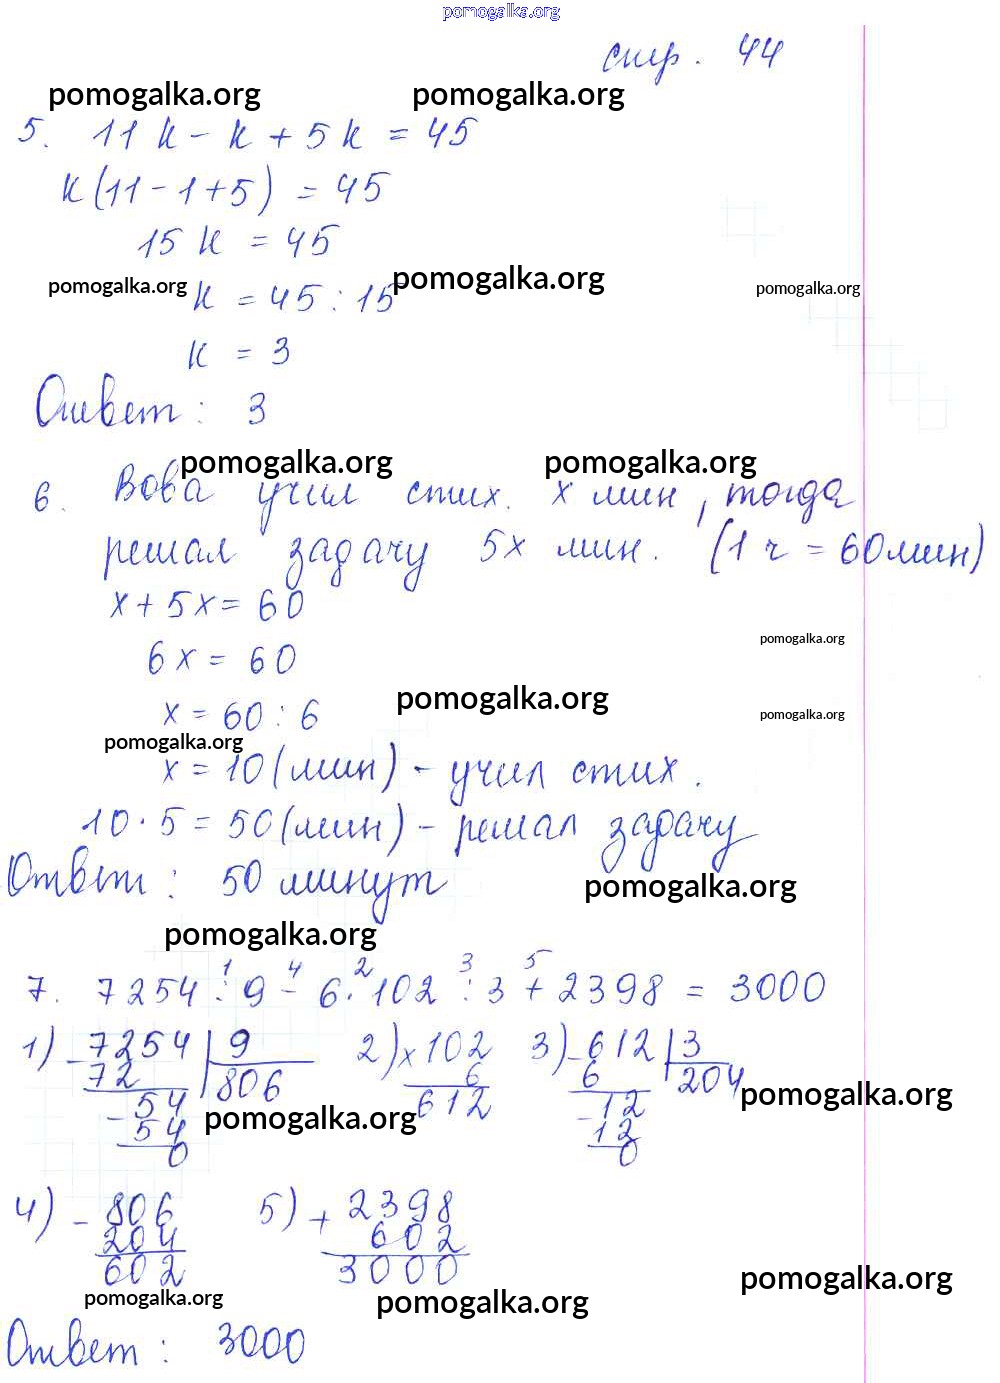 pomogalka.org
стр. 44
pomogalka.org pomogalka.org
5. 11к - к + 5к = 45
к(11 - 1 + 5) = 45
15 к = 45
pomogalka.org pomogalka.org pomogalka.org
к = 45 : 15
к = 3
Ответ: 3
pomogalka.org pomogalka.org
6. Вова учил стих. х мин, тогда
решал задачу 5х мин. (1 ч = 60 мин)
х + 5х = 60
pomogalka.org
6х = 60
pomogalka.org
х = 60 : 6 pomogalka.org
pomogalka.org
х = 10 (мин) - учил стих.
10 · 5 = 50 (мин) - решал задачу
Ответ: 50 минут pomogalka.org
pomogalka.org
1 4 2 3 5
7. 7254 : 9 - 6 · 102 : 3 + 2398 = 3000
1) - 7254 | 9 2) х 102 3) - 612 | 3
72 806 6 6 204
- 54 612 - 12
54 12
0 0
pomogalka.org pomogalka.org
4) - 806 5) + 2398
204 602
602 3000
pomogalka.org pomogalka.org pomogalka.org
Ответ: 3000